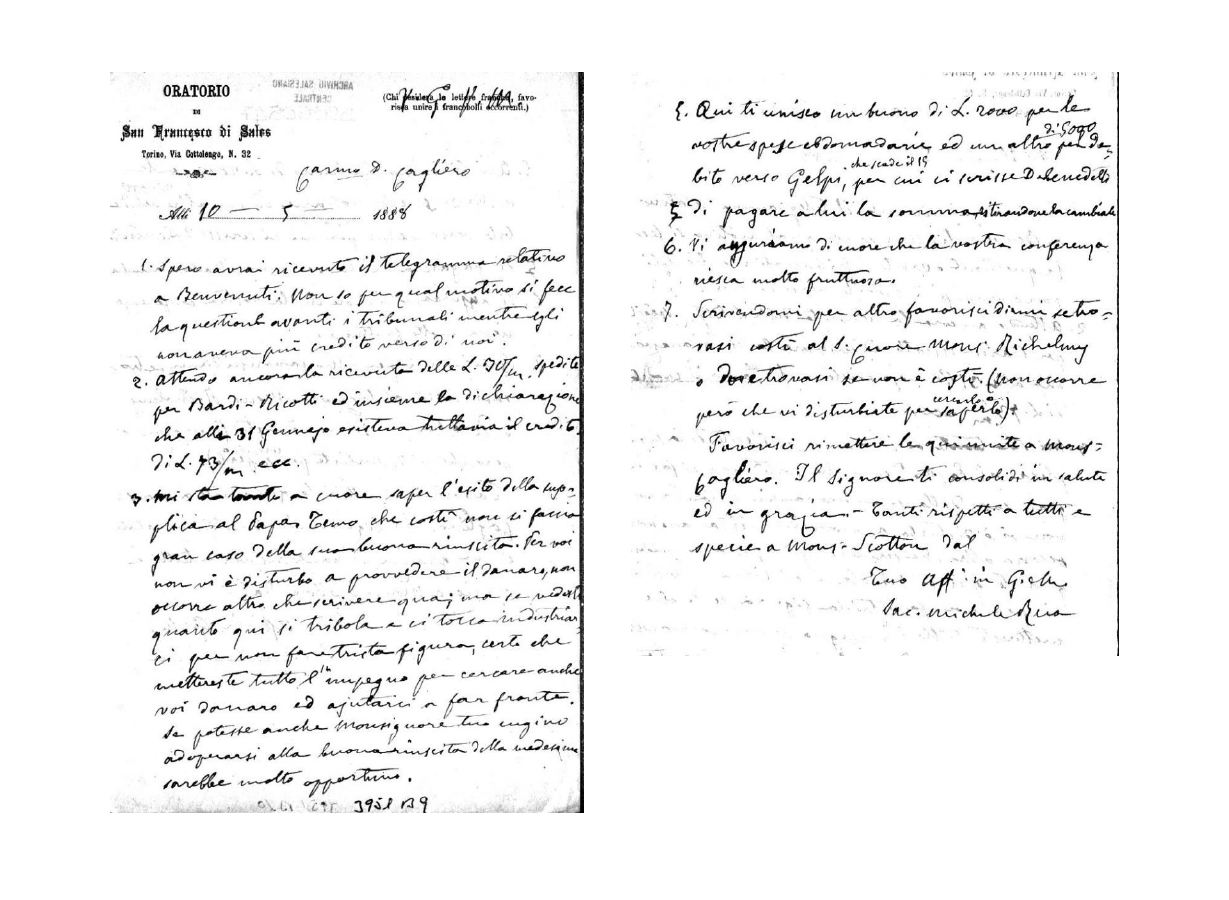 ORATORIO
DI
San Francesco di Sales
Torino, Via Cottolengo, N. 32
ARCHIVIO SALESIANO
CENTRALE
(Chi desidera le lettere franche, favo-
risca unire i francobolli occorrenti.)
V. G. M.
Carmo D. Cagliero
Alli 10 — 5 — 1888
1. Spero avrai ricevuto il telegramma relativo
a Benvenuti. Non so per qual motivo si fece
la questione avanti i tribunali mentre egli
non aveva più credito verso di noi.
2. Attendo ancora la ricevuta delle L. 30/m. spedite
per Bardi-Ricotti ed insieme la dichiarazione
che alli 31 Gennajo esisteva tuttavia il credito
di L. 73/m ecc.
3. Mi sta tanto a cuore saper l'esito della sup-
plica al Papa. Temo che costì non si faccia
gran caso della sua buona riuscita. Per voi
non vi è disturbo a provvedere il danaro, non
occorre altro che scrivere qua; ma se vedeste
quanto qui si tribola e ci tocca industriar-
ci per non fare trista figura, certo che
mettereste tutto l'impegno per cercare anche
voi danaro ed ajutarci a far fronte.
Se potesse anche Monsignore tuo cugino
adoperarsi alla buona riuscita della medesima
sarebbe molto opportuno.
3958 B9
5. Qui ti unisco un buono di L. 2000 per le
vostre spese ebdomadarie ed un altro di 5000 pel de-
bito verso Gelpi, che scade il 15 per cui ci scrisse D. Benedetto
di pagare a lui la somma ritirandone la cambiale
6. Vi auguriamo di cuore che la vostra conferenza
riesca molto fruttuosa.
7. Scrivendomi per altro favorisci dirmi se tro-
vasi costì al S. Cuore Mons. Richelmy
o dove trovasi se non è costì. (Non occorre
però che vi disturbiate per cercarlo o saperlo).
Favorisci rimettere le qui unite a Mons.
Cagliero. Il Signore ti consolidi in salute
ed in grazia. - Tanti rispetti a tutti e
specie a Mons. Scotton dal
Tuo Aff. in G. e M.
Sac. Michele Rua